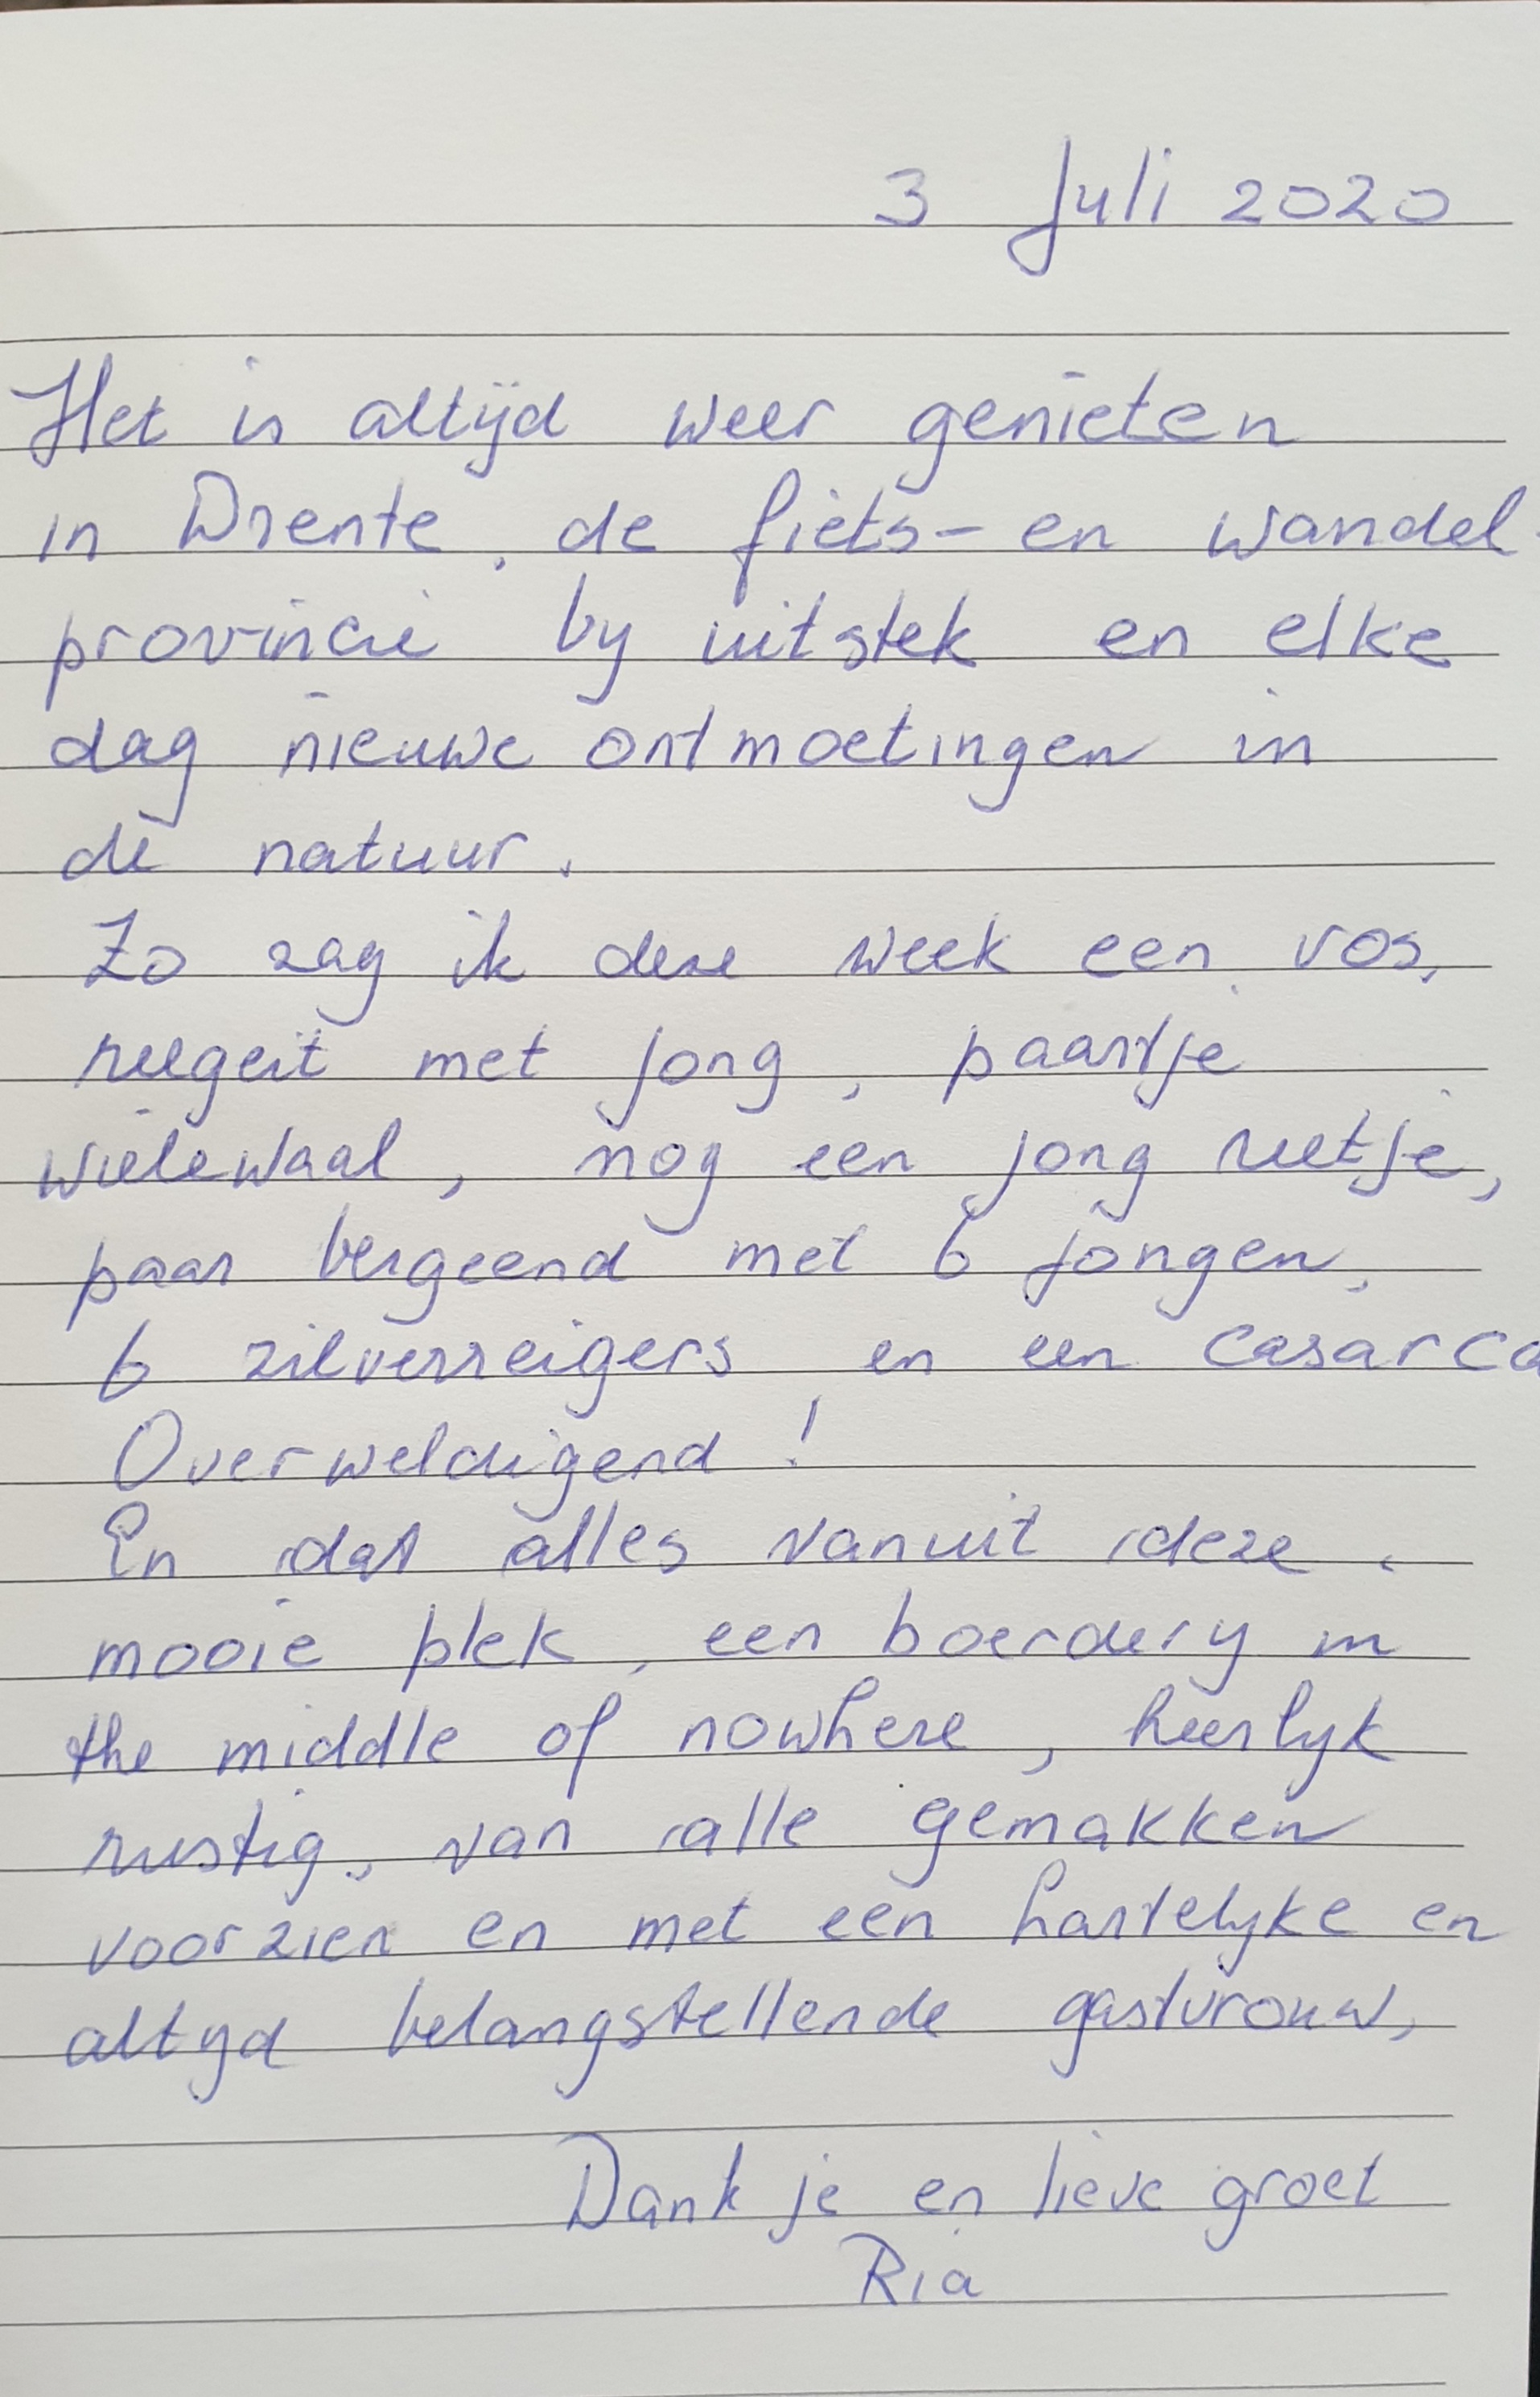 3 Juli 2020
Het is altijd weer genieten
in Drente, de fiets- en wandel-
provincie bij uitstek en elke
dag nieuwe ontmoetingen in
de natuur.
Zo zag ik deze week een vos,
reegeit met jong, paartje
wielewaal, nog een jong reetje,
paar bergeend met 6 jongen,
6 zilverreigers en een casarca
Overweldigend!
En dat alles vanuit deze
mooie plek, een boerderij in
the middle of nowhere, heerlijk
rustig, van alle gemakken
voorzien en met een hartelijke en
altijd belangstellende gastvrouw,
Dank je en lieve groet
Ria